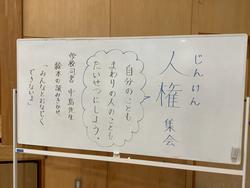 じんけん
人権 集会
自分のことも
まわりの人のことも
たいせつにしよう。
学校司書 中島先生
絵本の読みきかせ
「みんなとおなじく
できないよ」